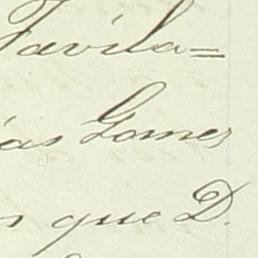 Favila=
as Gomes
que D.